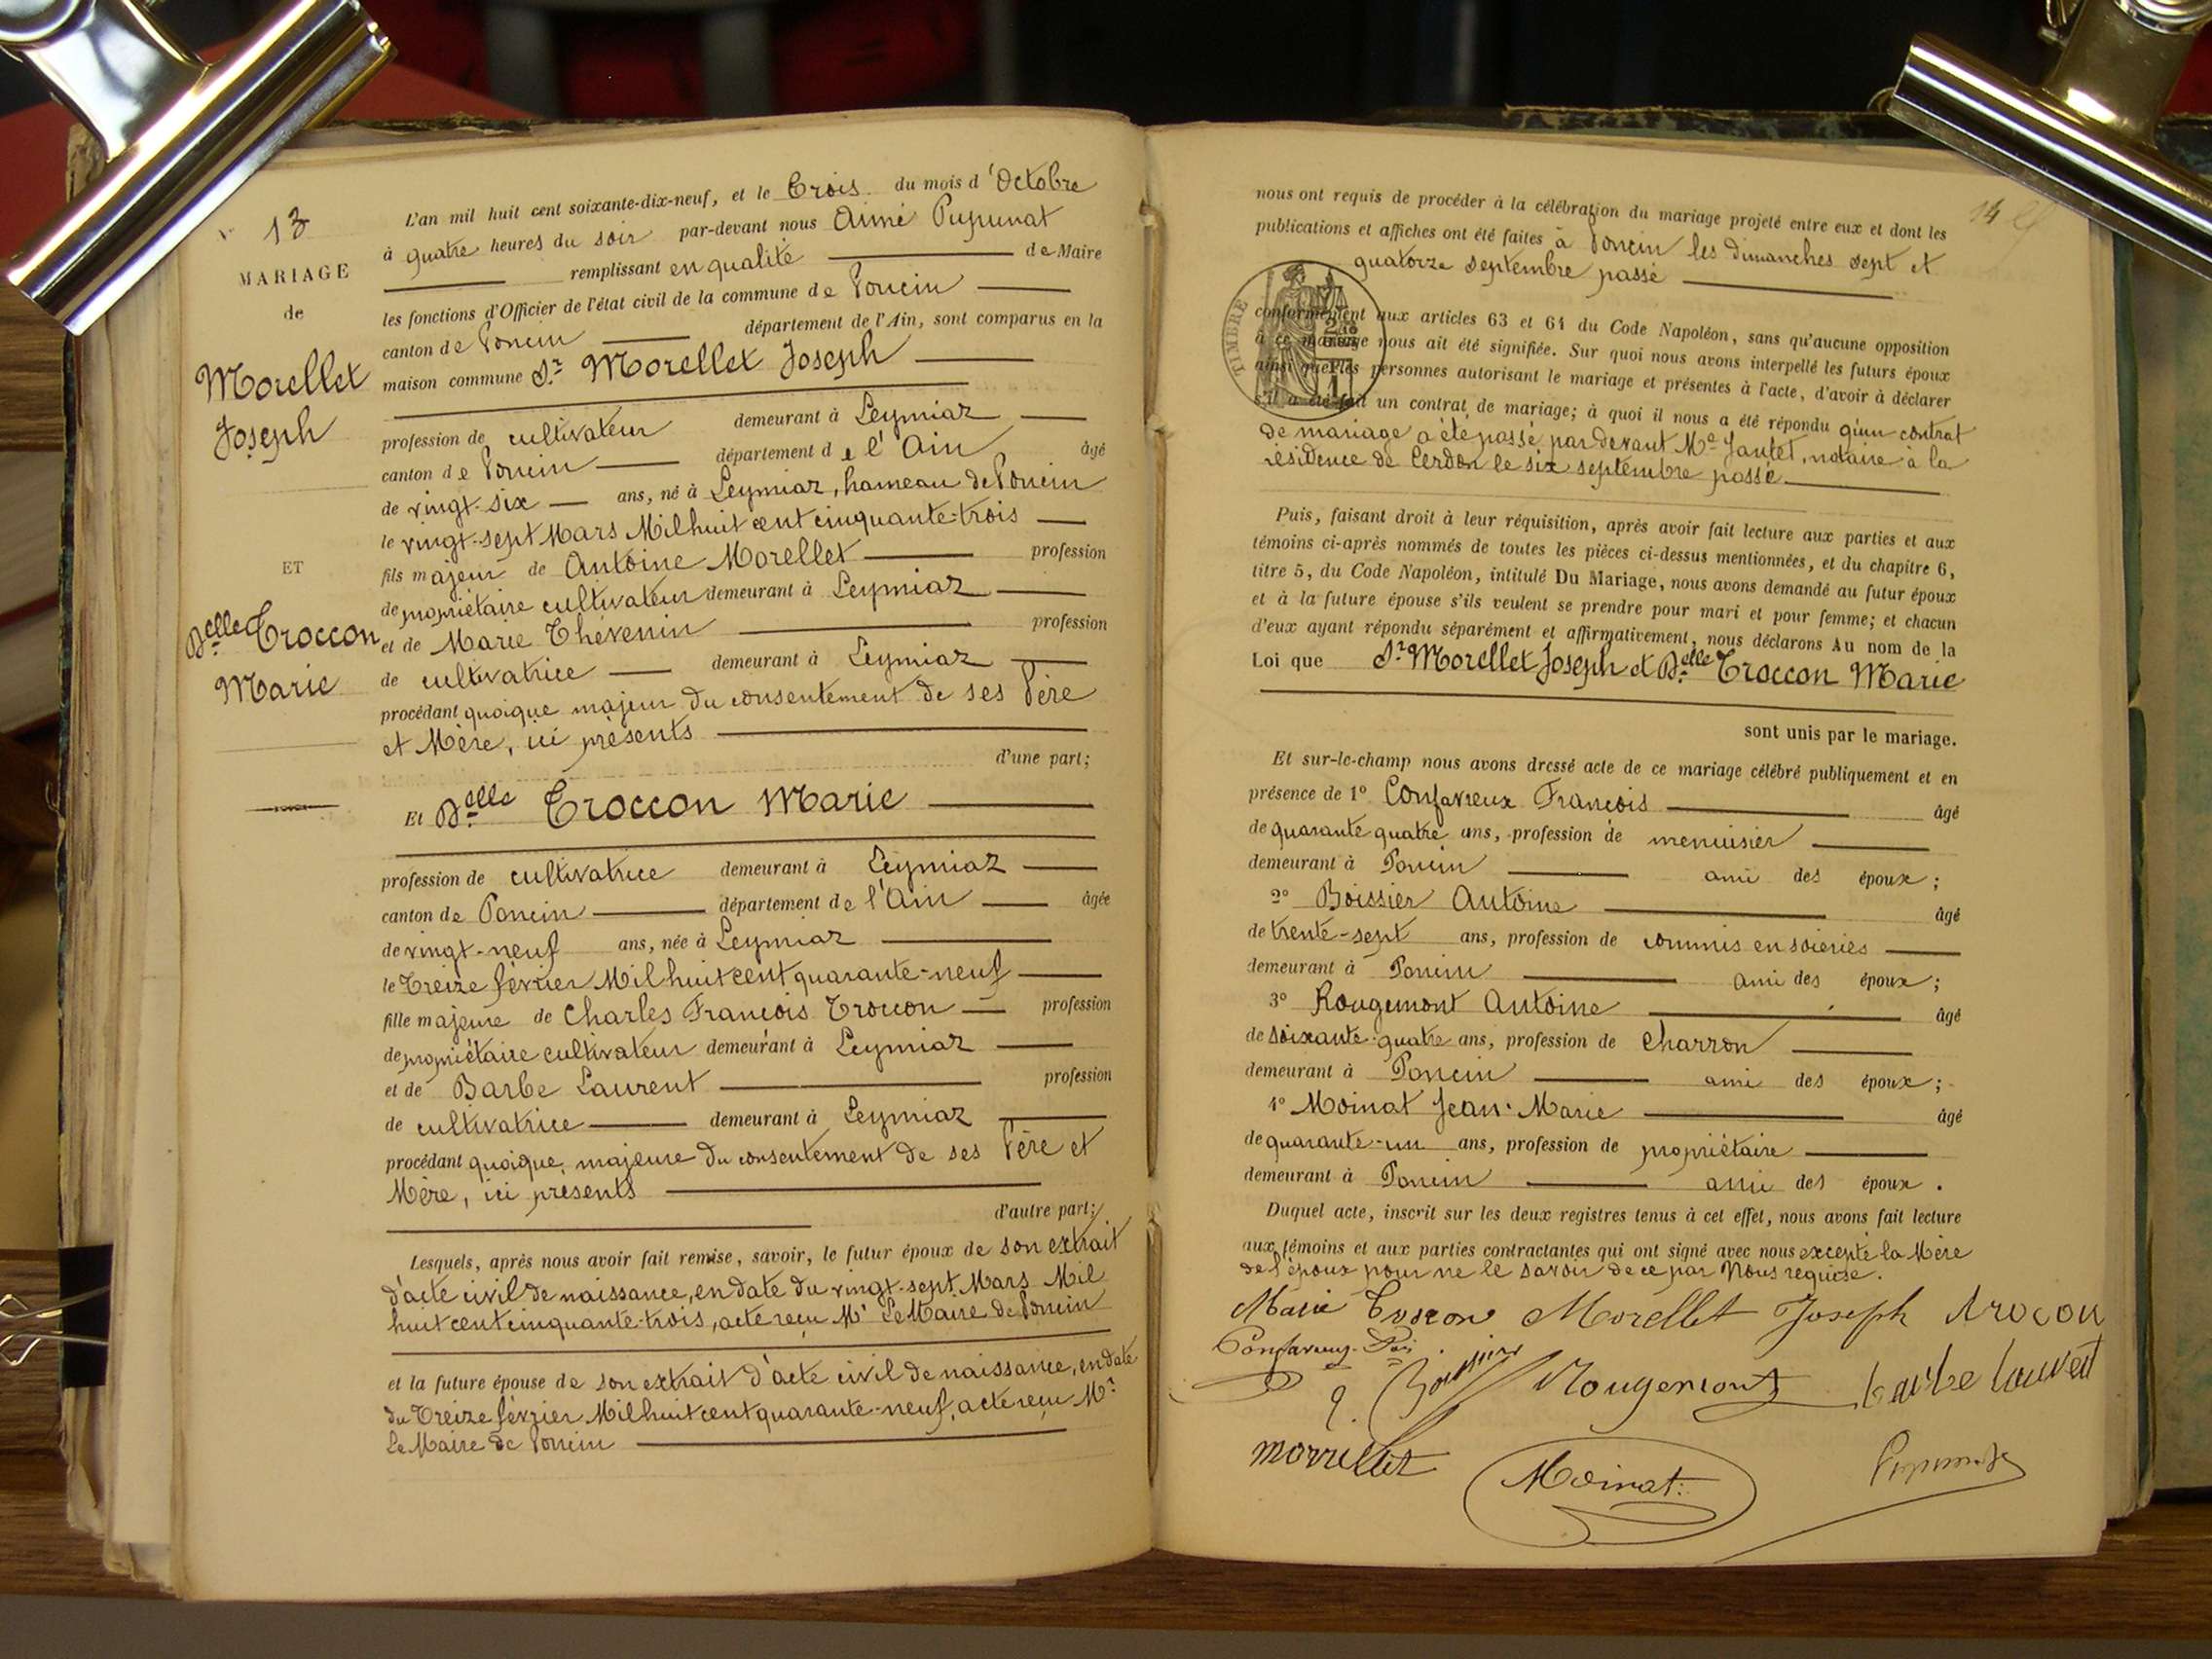 N° 13
MARIAGE
de
Morellet
Joseph
ET
Delle Troccon
Marie
L'an mil huit cent soixante-dix-neuf, et le Trois du mois d'Octobre
à quatre heures du soir par-devant nous Aimé Pupunat
remplissant en qualité de Maire
les fonctions d'Officier de l'état civil de la commune de Poncin
canton de Poncin département de l'Ain, sont comparus en la
maison commune Sr Morellet Joseph
profession de cultivateur demeurant à Leymiaz
canton de Poncin département de l'Ain âgé
de vingt-six ans, né à Leymiaz, hameau de Poncin
le vingt-sept Mars Mil huit cent cinquante-trois
fils majeur de Antoine Morellet profession
de propriétaire cultivateur demeurant à Leymiaz
et de Marie Thévenin profession
de cultivatrice demeurant à Leymiaz
procédant quoique majeur du consentement de ses Père
et Mère, ici présents
d'une part;
Et Delle Troccon Marie
profession de cultivatrice demeurant à Leymiaz
canton de Poncin département de l'Ain âgée
de vingt-neuf ans, née à Leymiaz
le Treize février Mil huit cent quarante-neuf
fille majeure de Charles François Troccon profession
de propriétaire cultivateur demeurant à Leymiaz
et de Barbe Laurent profession
de cultivatrice demeurant à Leymiaz
procédant quoique majeure du consentement de ses Père et
Mère, ici présents
d'autre part;
Lesquels, après nous avoir fait remise, savoir, le futur époux de son extrait
d'acte civil de naissance, en date du vingt-sept Mars Mil
huit cent cinquante-trois, acte reçu Mr Le Maire de Poncin
et la future épouse de son extrait d'acte civil de naissance, en date
du Treize février Mil huit cent quarante-neuf, acte reçu Mr
Le Maire de Poncin
14
nous ont requis de procéder à la célébration du mariage projeté entre eux et dont les
publications et affiches ont été faites à Poncin les dimanches sept et
quatorze septembre passé
TIMBRE
conformément aux articles 63 et 64 du Code Napoléon, sans qu'aucune opposition
à ce mariage nous ait été signifiée. Sur quoi nous avons interpellé les futurs époux
ainsi que les personnes autorisant le mariage et présentes à l'acte, d'avoir à déclarer
s'il a été fait un contrat de mariage; à quoi il nous a été répondu qu'un contrat
de mariage a été passé par devant Me Jantet, notaire à la
résidence de Cerdon le six septembre passé.
Puis, faisant droit à leur réquisition, après avoir fait lecture aux parties et aux
témoins ci-après nommés de toutes les pièces ci-dessus mentionnées, et du chapitre 6,
titre 5, du Code Napoléon, intitulé Du Mariage, nous avons demandé au futur époux
et à la future épouse s'ils veulent se prendre pour mari et pour femme; et chacun
d'eux ayant répondu séparément et affirmativement, nous déclarons Au nom de la
Loi que Sr Morellet Joseph et Delle Troccon Marie
sont unis par le mariage.
Et sur-le-champ nous avons dressé acte de ce mariage célébré publiquement et en
présence de 1° Confavreux François âgé
de quarante quatre ans, profession de menuisier
demeurant à Poncin ami des époux;
2° Boissier Antoine âgé
de trente-sept ans, profession de commis en soieries
demeurant à Poncin ami des époux;
3° Rougemont Antoine âgé
de soixante-quatre ans, profession de charron
demeurant à Poncin ami des époux;
4° Moinat Jean-Marie âgé
de quarante-un ans, profession de propriétaire
demeurant à Poncin ami des époux.
Duquel acte, inscrit sur les deux registres tenus à cet effet, nous avons fait lecture
aux témoins et aux parties contractantes qui ont signé avec nous excepté la Mère
de l'époux pour ne le savoir de ce par Nous requise.
Marie Troccon Morellet Joseph trocon
Confavreux Boissier Rougemont barbe lauvent
morrellet Moinat Pupunat